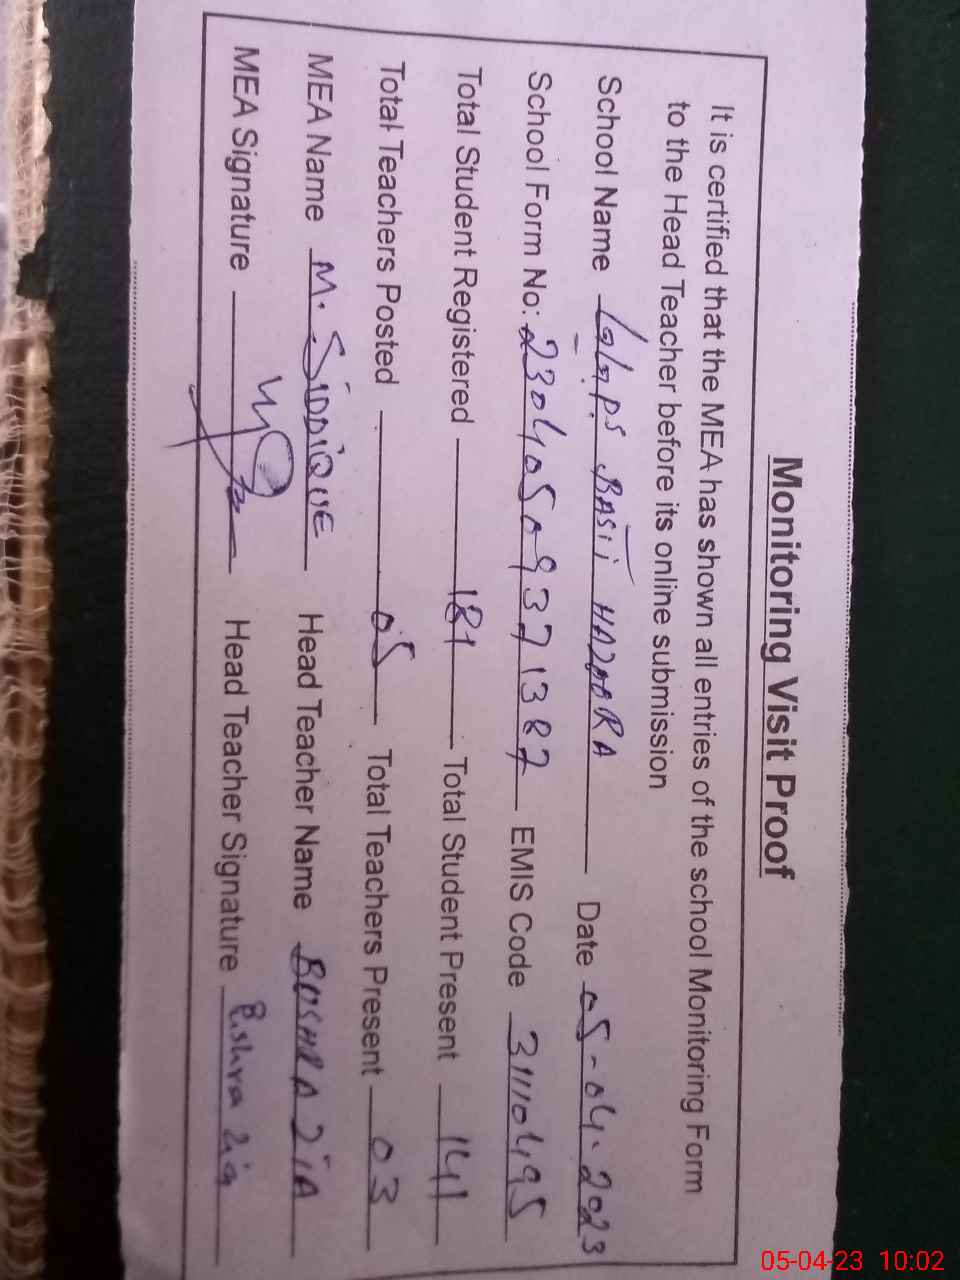 Monitoring Visit Proof
It is certified that the MEA has shown all entries of the school Monitoring Form
to the Head Teacher before its online submission
School Name GGPS BASTI HAZOORA Date 05-04-2023
School Form No: 23040509371387 EMIS Code 31110495
Total Student Registered 181 Total Student Present 141
Total Teachers Posted 05 Total Teachers Present 03
MEA Name M. SIDDIQUE Head Teacher Name BUSHRA ZIA
MEA Signature Head Teacher Signature Bushra Zia
05-04-23 10:02